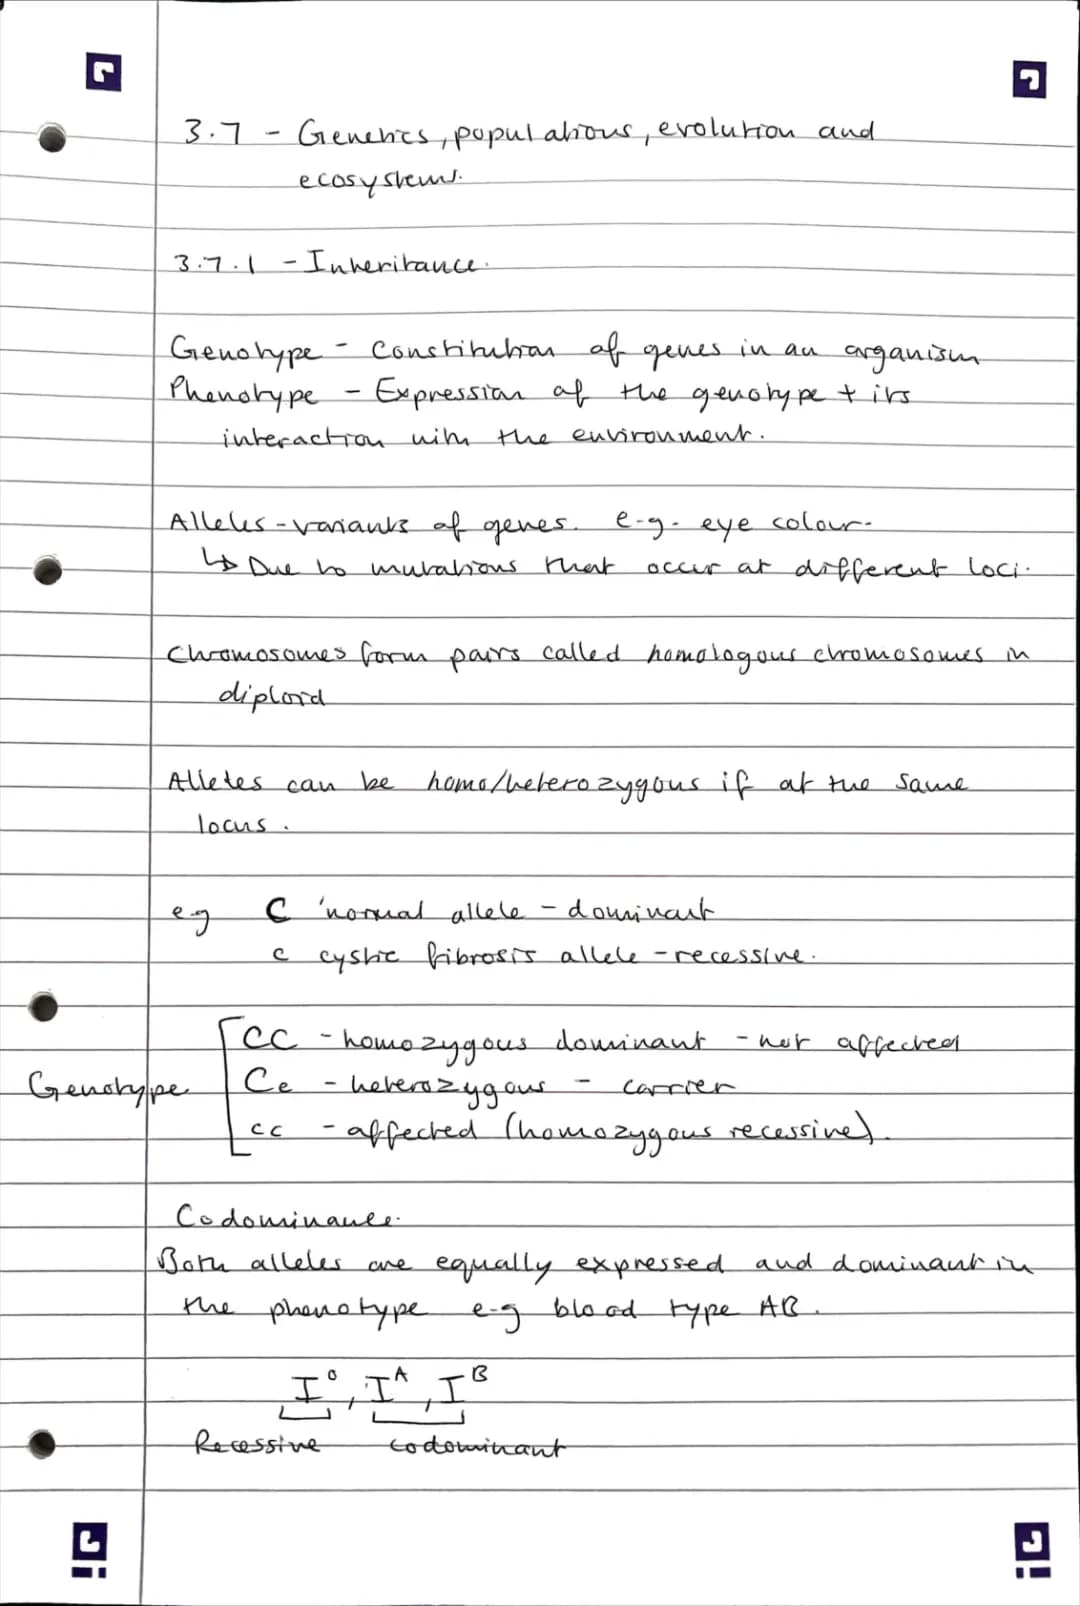 3.7 - Genetics, populations, evolution and
ecosystems.
3.7.1 - Inheritance.
Genotype - Constitution of genes in an organism
Phenotype - Expression of the genotype + its
interaction with the environment.
Alleles - variants of genes. e.g. eye colour.
↳ Due to mutations that occur at different loci.
Chromosomes form pairs called homologous chromosomes in
diploid
Alleles can be homo/heterozygous if at the same
locus.
eg C 'normal allele - dominant
c cystic fibrosis allele - recessive.
CC - homozygous dominant - not affected
Genotype Cc - heterozygous - carrier
cc - affected (homozygous recessive).
Codominance.
Both alleles are equally expressed and dominant in
the phenotype e-g blood type AB.
Iᴼ, Iᴬ, Iᴮ
Recessive codominant